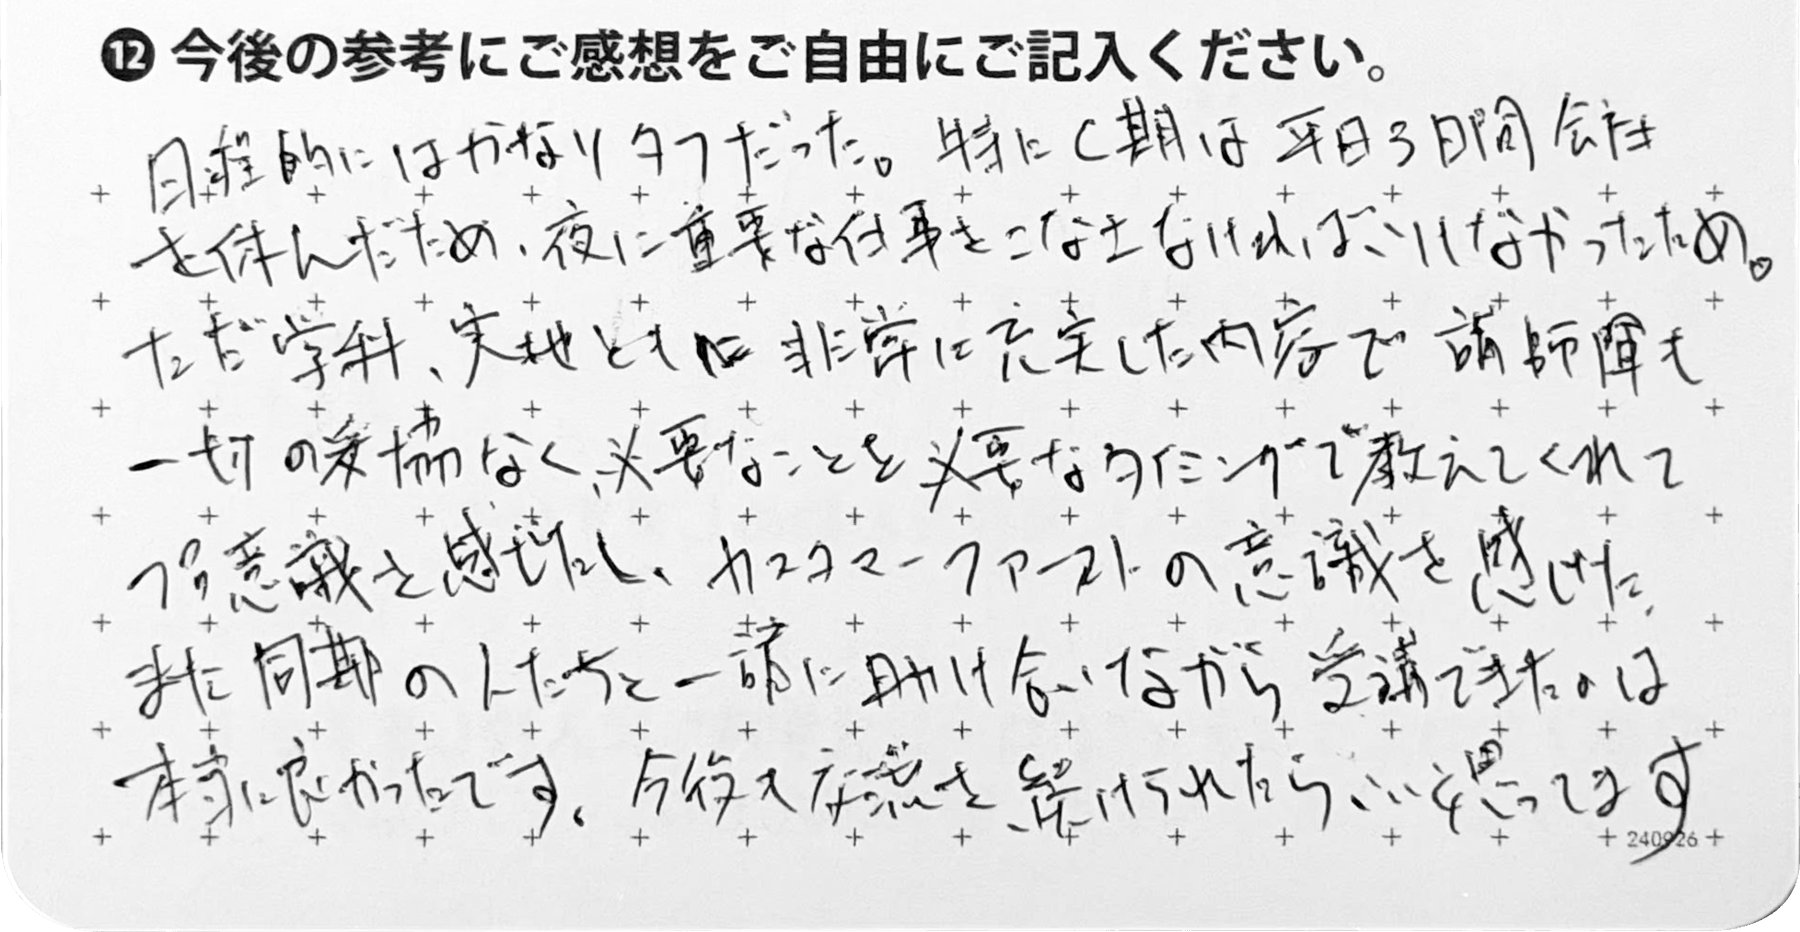 ⓬ 今後の参考にご感想をご自由にご記入ください。
日程的にはかなりタフだった。特にC期は平日3日間会社
を休んだため、夜に重要な仕事をこなさなければいけなかったため。
ただ学科、実地ともに非常に充実した内容で講師陣も
一切の妥協なく、必要なことを必要なタイミングで教えてくれて
プロ意識を感じたし、カスタマーファーストの意識を感じた。
また同期の人たちと一諸に助け合いながら受講できたのは
本当に良かったです。今後も交流を続けられたらいいと思ってます
240926